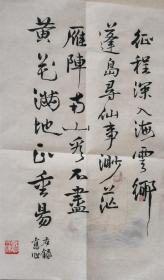 征程深入海雲鄉
蓬島尋仙事渺茫
雁陣南山看不盡
黄花滿地正重易
右錄